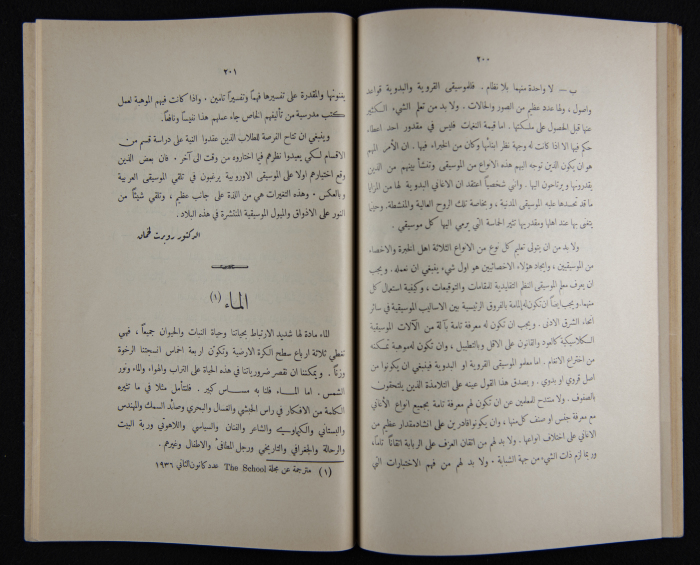 ٢٠٠
ب — لا واحدة منهما بلا نظام . فللموسيقى القروية والبدوية قواعد
واصول ، ولها عدد عظيم من الصور والحالات . ولا بد من تعلم الشيء الكثير
عنها قبل الحصول على ملكتها . اما قيمة النغمات فليس في مقدور احد اعطاء
حكم فيها الا اذا كانت له وجهة نظر ابنائها وكان من الخبراء فيها . ان الأمر المهم
هو ان يكون الذين توجه اليهم هذه الانواع من الموسيقى وتنشأ بينهم من الذين
يقدرونها ويرتاحون اليها . واني شخصياً اعتقد ان الاغاني البدوية لها من المزايا
ما قد تحسدها عليه الموسيقى المدنية ، وبخاصة تلك الروح العالية والمنشطة. وحينما
يتغنى بها عند اهلها ومقدريها تثير الحماسة التي يرمي اليها كل موسيقي .
ولا بد من ان يتولى تعليم كل نوع من الانواع الثلاثة اهل الخبرة والاخصاء
من الموسيقيين ، وايجاد هؤلاء الاخصائيين هو اول شيء ينبغي ان نعمله . ويجب
ان يعرف معلم الموسيقى النظر التقليدية للمقامات والتوقيعات ، وكيفية استعمال كل
منهما. ويجب ايضاً ان تكون له إلمامة بالفروق الرئيسية بين الاساليب الموسيقية في سائر
انحاء الشرق الادنى . ويجب ان تكون له معرفة تامة بآلة من الآلات الموسيقية
الكلاسيكية كالعود والقانون على الاقل وبالتطبيل ، وان تكون له موهبة تمكنه
من اختراع الانغام . اما معلمو الموسيقى القروية او البدوية فينبغي ان يكونوا من
اصل قروي او بدوي . ويصدق هذا القول عينه على التلامذة الذين يلتحقون
بالصفوف . ولا منتدح للمعلمين عن ان تكون لهم معرفة تامة بجميع انواع الأغاني
مع معرفة جنس او صنف كل منها ، وان يكونوا قادرين على انشاد مقدار عظيم من
الاغاني على اختلاف انواعها . ولا بد لهم من اتقان العزف على الربابة اتقاناً تاماً،
وربما لزم ذات الشيء من جهة الشبابة . ولا بد لهم من فهم الاختبارات التي
٢٠١
يفنونها والمقدرة على تفسيرها فهماً وتفسيراً تامين . واذا كانت فيهم الموهبة لعمل
كتب مدرسية من تأليفهم الخاص جاء عملهم هذا نفيساً ونافعاً.
وينبغي ان تتاح الفرصة للطلاب الذين عقدوا النية على دراسة قسم من
الاقسام لكي يعيدوا نظرهم فيما اختاروه من وقت الى آخر . فان بعض الذين
وقع اختيارهم اولا على الموسيقى الاوروبية يرغبون في تلقي الموسيقى العربية
وبالعكس . وهذه التغيرات هي من اللذة على جانب عظيم ، وتلقي شيئاً من
النور على الاذواق والميول الموسيقية المنتشرة في هذه البلاد .
الدكتور روبرت لخمان
الماء (١)
الماء مادة لها شديد الارتباط بحياتنا وحياة النبات والحيوان جميعاً ، فهي
تغطي ثلاثة ارباع سطح الكرة الارضية وتكوّن اربعة اخماس انسجتنا الرخوة
وزناً . ويمكننا ان نقصر ضرورياتنا في هذه الحياة على التراب والهواء والماء ونور
الشمس . اما المـاء فلنا به مسـاس كبير . فلنتأمل مثلا في ما تثيره
الكلمة من الافكار في راس الحبشي والغسال والبحري وصائد السمك والمهندس
والبستاني والكيماوي والشاعر والفنان والسياسي واللاهوتي وربة البيت
والرحالة والجغرافي والتاريخي ورجل المطافىء والاطفال وغيرهم .
(١) مترجمة عن مجلة The School عدد كانون الثاني ١٩٣٦